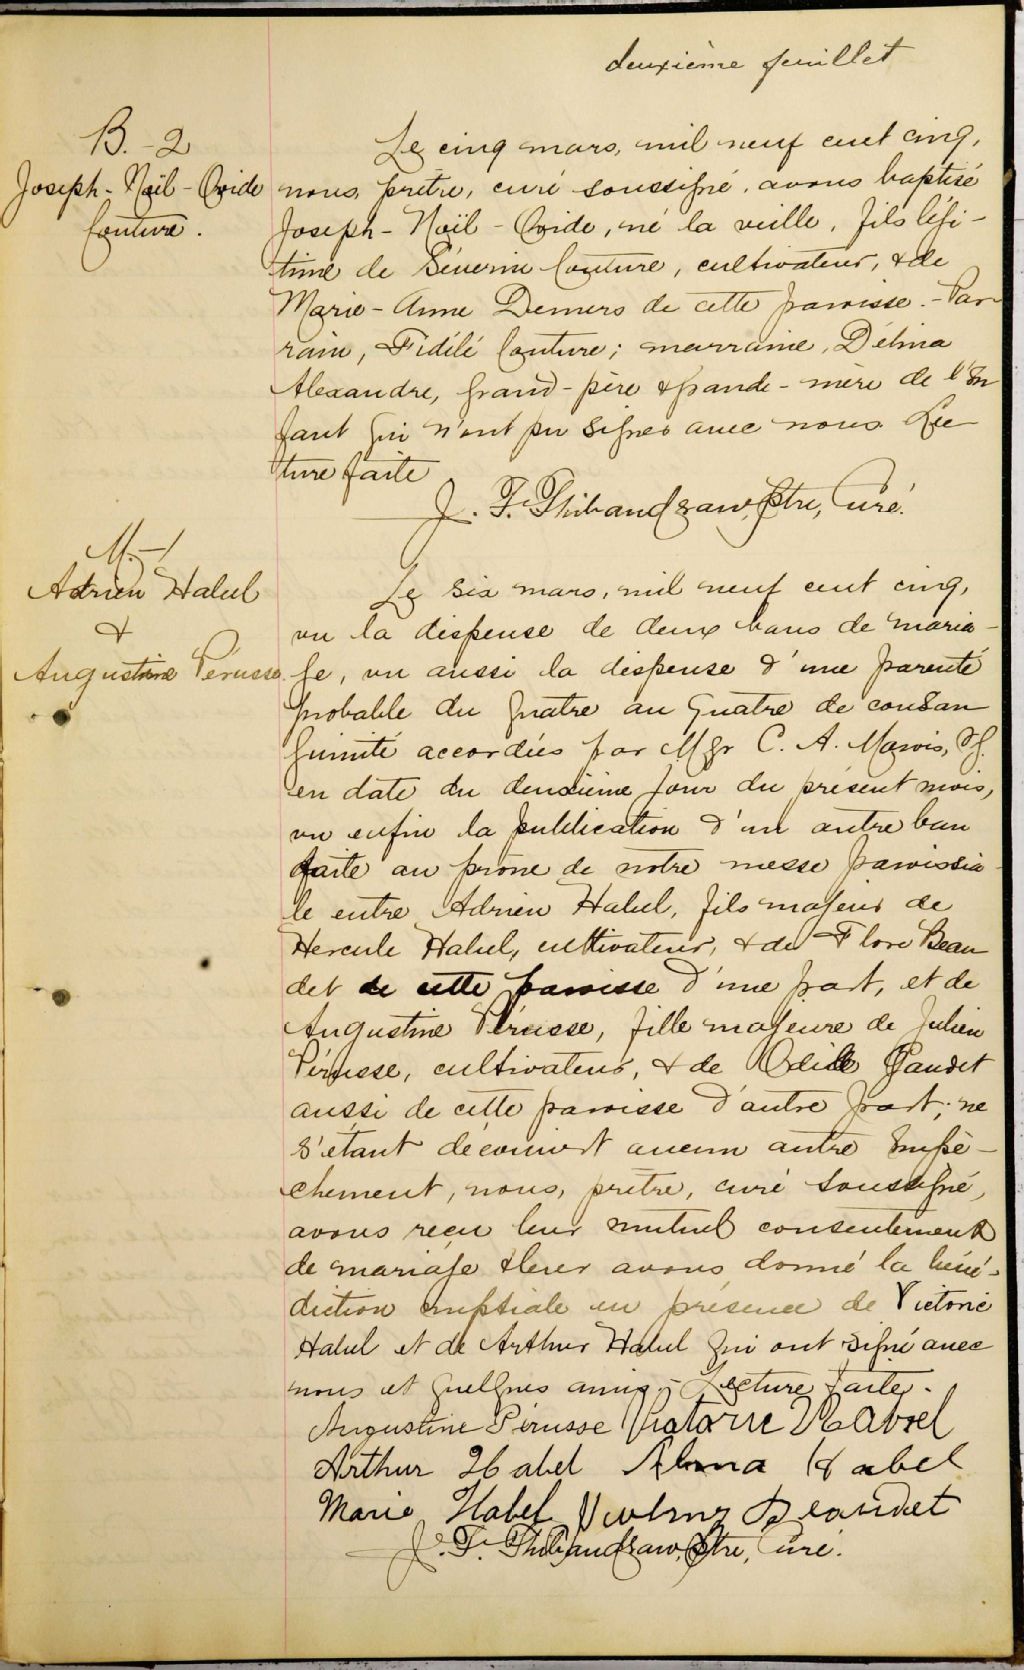 deuxième feuillet
B. - 2
Joseph - Noël - Ovide
Couture.
Le cinq mars, mil neuf cent cinq,
nous, prêtre, curé soussigné, avons baptisé
Joseph - Noël - Ovide, né la veille, fils légi-
time de Séverin Couture, cultivateur, & de
Marie - Anne Demers de cette paroisse. - Par
rain, Fidélé Couture; marraine, Délina
Alexandre, grand - père & grande - mère de l'en
fant qui n'ont pu signer avec nous. Lec
ture faite
J. F. Thibaudeau, Ptre, Curé.
M. - 1
Adrien Habel
&
Augustine Pérusse.
Le six mars, mil neuf cent cinq,
vu la dispense de deux bans de maria-
ge, vu aussi la dispense d'une parenté
probable du quatre au quatre de consan
guinité accordées par Mgr C. A. Marois, V.G.
en date du deuxième jour du présent mois,
vu enfin la publication d'un autre ban
faite au prone de notre messe paroissia-
le entre Adrien Habel, fils majeur de
Hercule Habel, cultivateur, & de Flore Beau
det de cette paroisse d'une part, et de
Augustine Pérusse, fille majeure de Julien
Pérusse, cultivateur, & de Odile Gaudet
aussi de cette paroisse d'autre part; ne
s'étant découvert aucun autre empê-
chement, nous, prêtre, curé soussigné,
avons reçu leur mutuel consentement
de mariage & leur avons donné la béné-
diction nuptiale en présence de Victorie
Habel et de Arthur Habel qui ont signé avec
nous et quelques amis. - Lecture faite.
Augustine Pérusse Victorie Habel
Arthur Habel Alma Habel
Marie Habel Beaudet
J. F. Thibaudeau, Ptre, Curé.